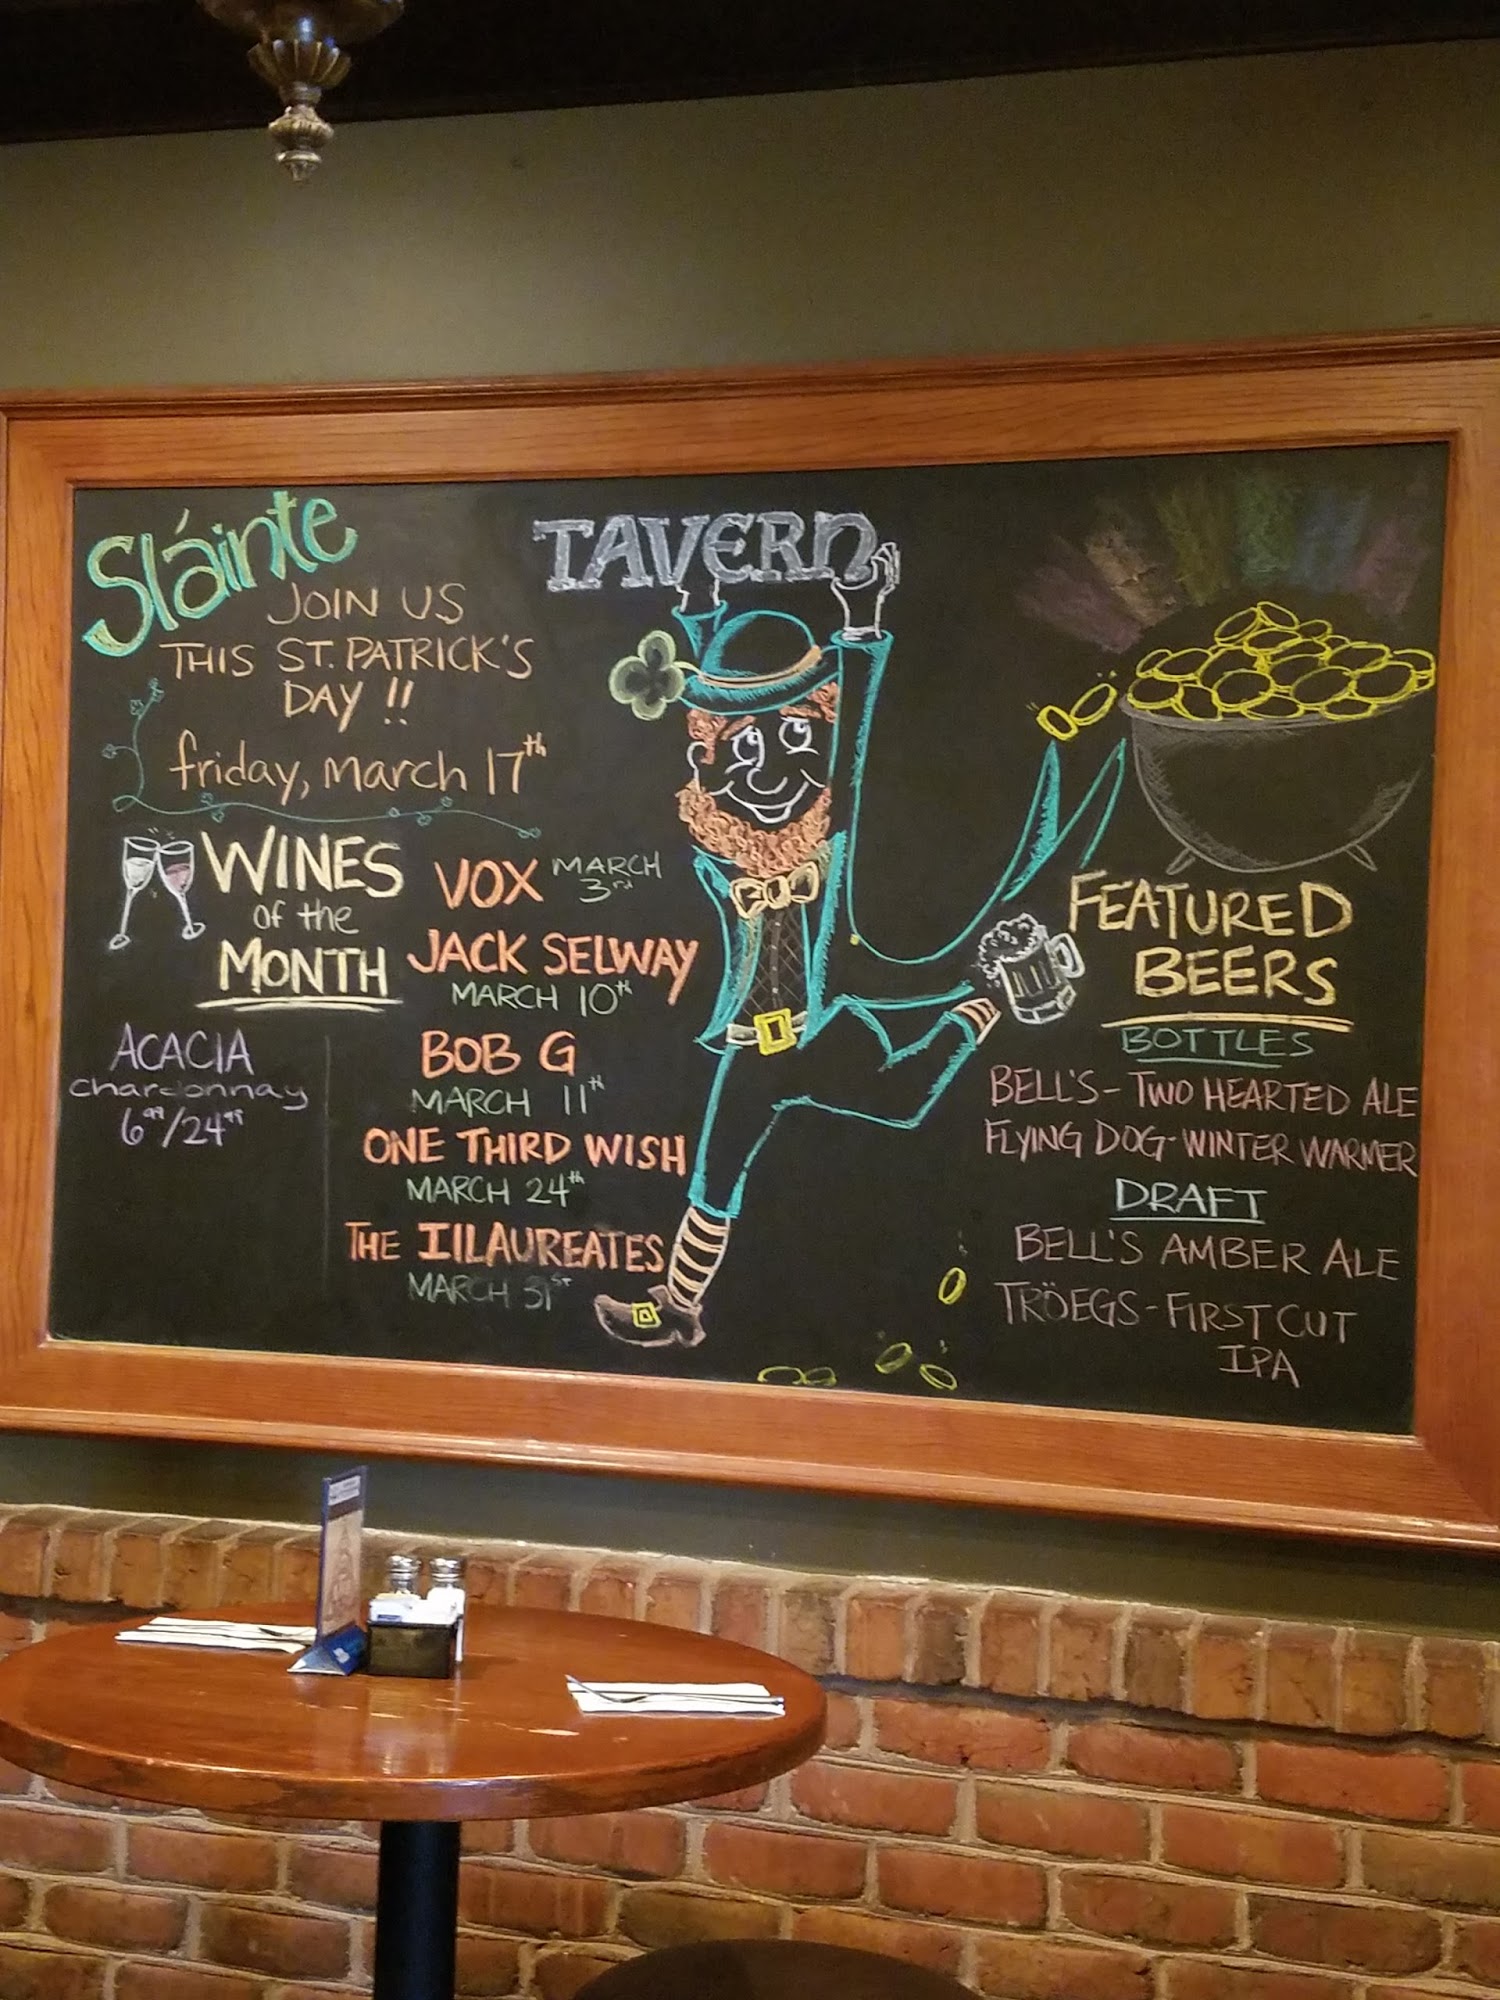 Sláinte
JOIN US
THIS ST. PATRICK'S
DAY !!
friday, March 17th
TAVERN
WINES
of the
MONTH
ACACIA
chardonnay
6.99/24.99
VOX MARCH
3rd
JACK SELWAY
MARCH 10th
BOB G
MARCH 11th
ONE THIRD WISH
MARCH 24th
THE IllAUREATES
MARCH 31ST
FEATURED
BEERS
BOTTLES
BELL'S - TWO HEARTED ALE
FLYING DOG - WINTER WARMER
DRAFT
BELL'S AMBER ALE
TRÖEGS - FIRST CUT
IPA